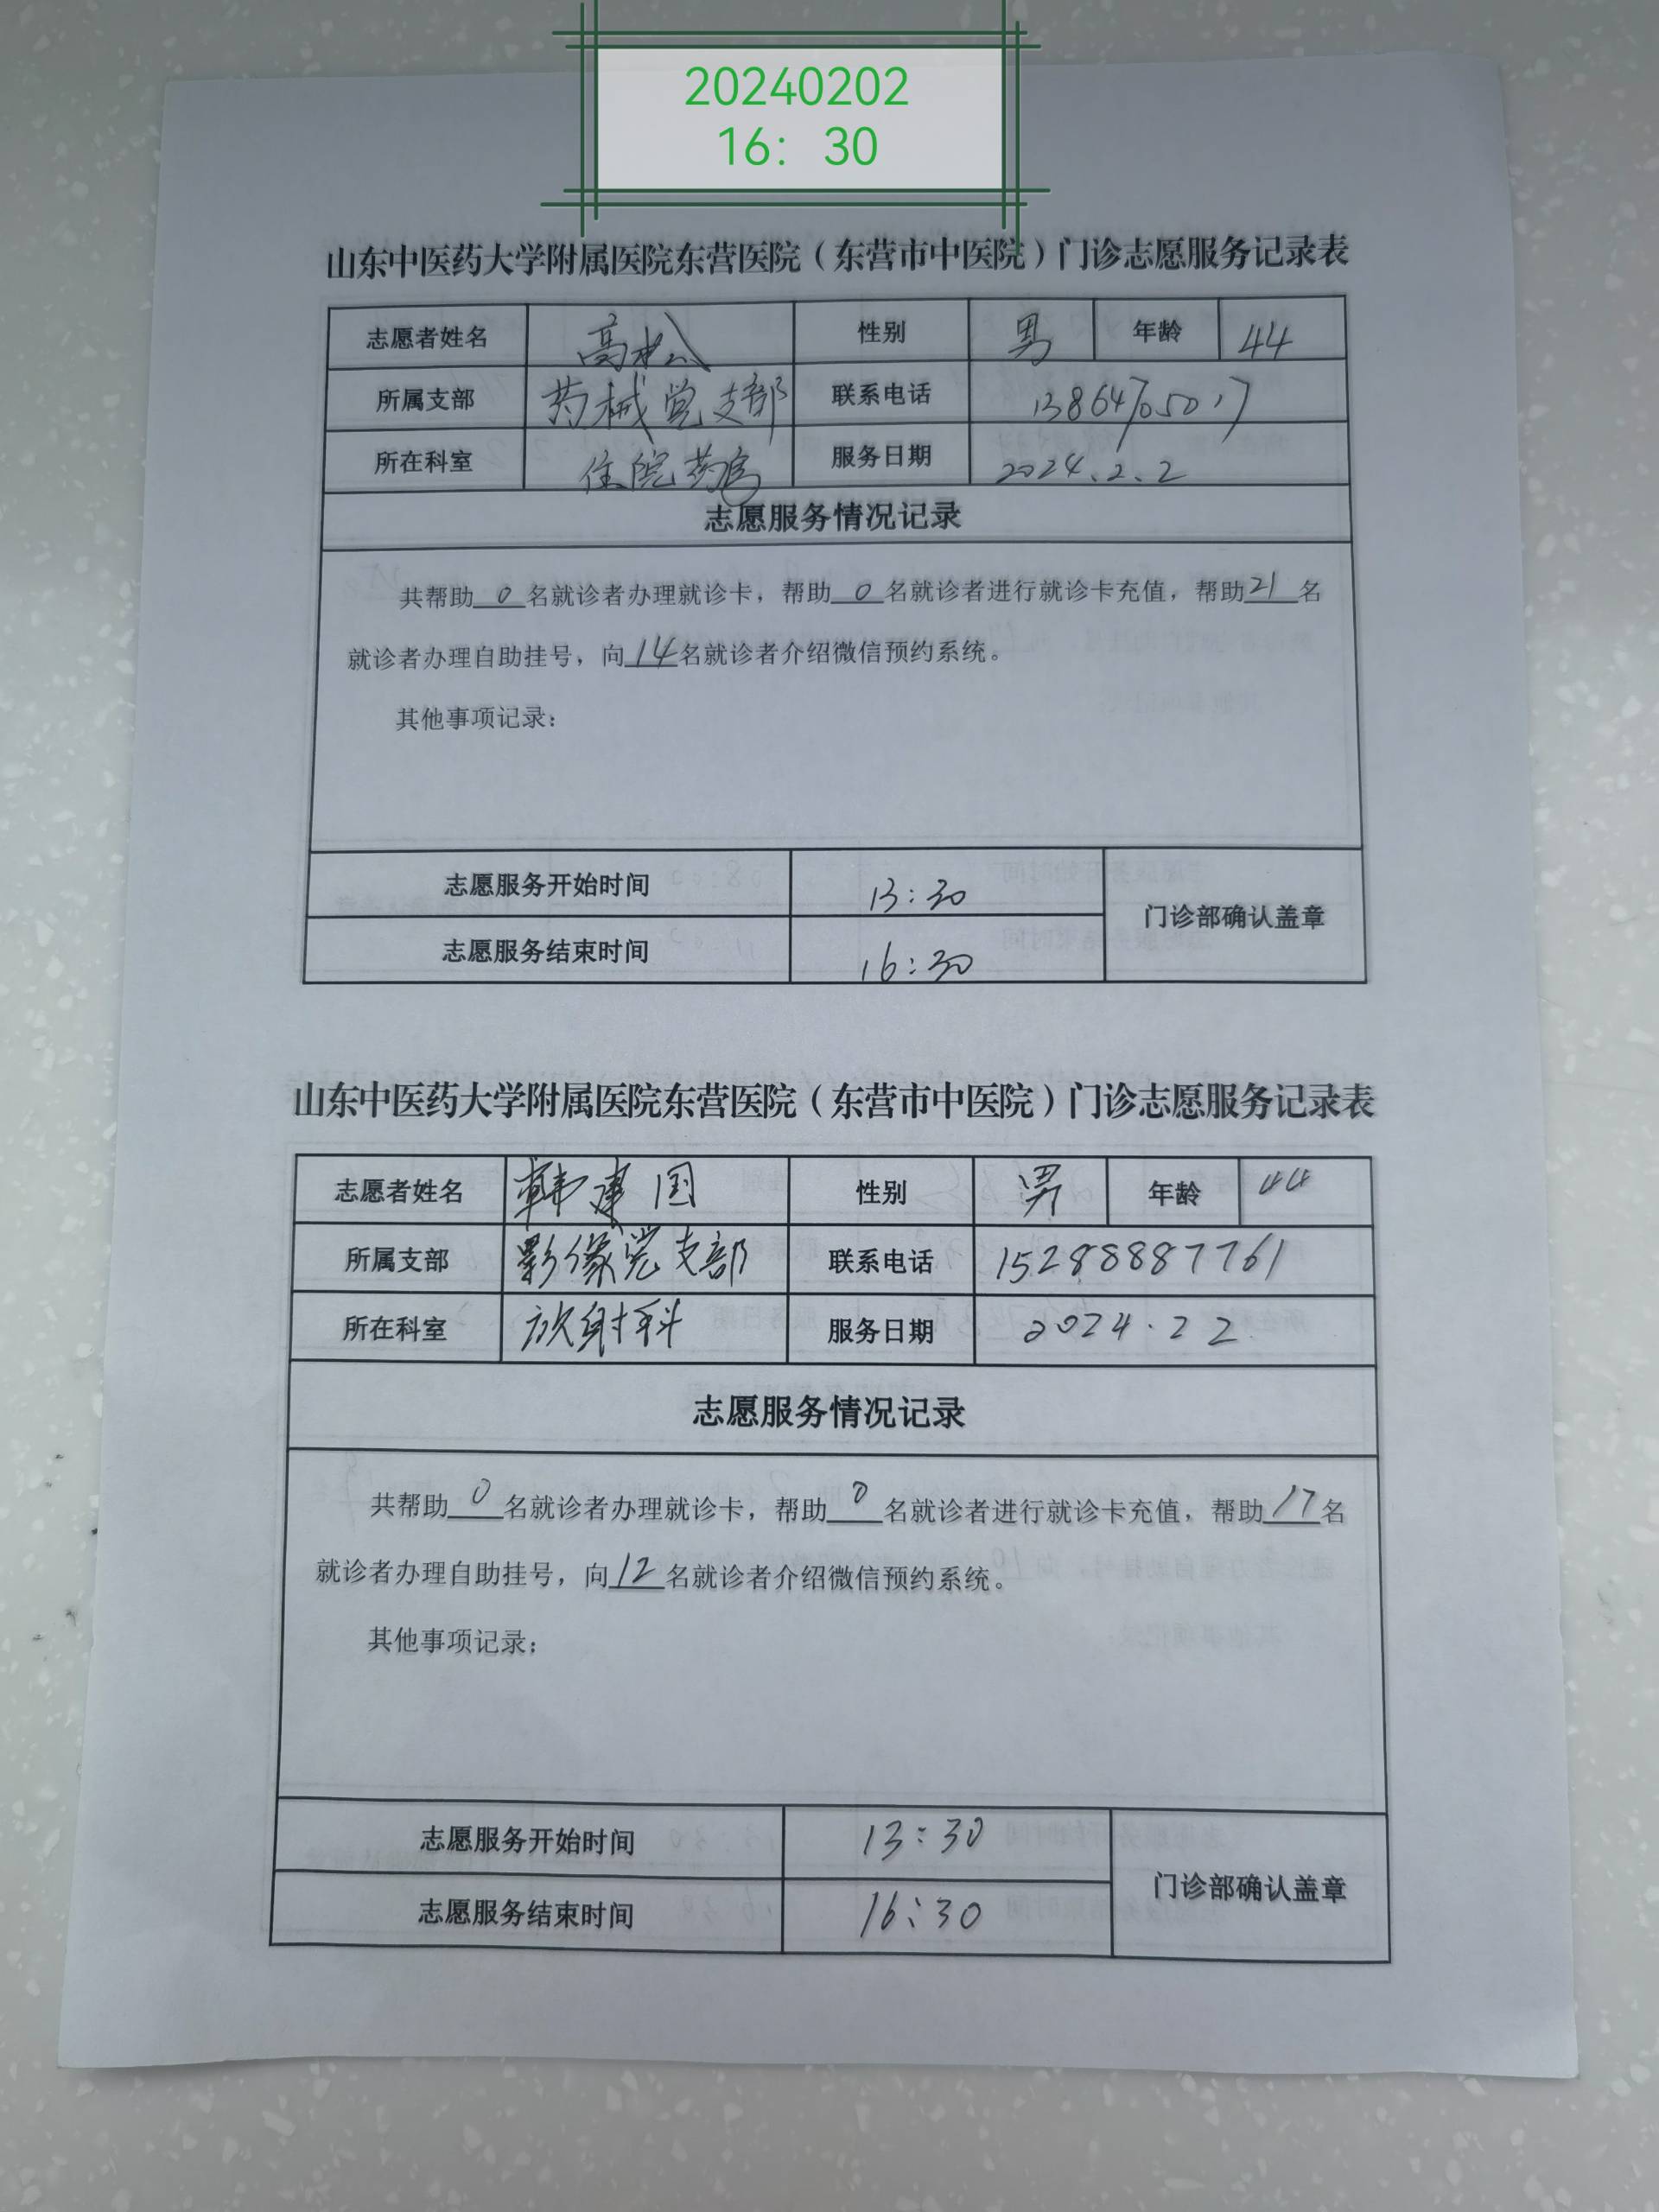 20240202
16：30
山东中医药大学附属医院东营医院（东营市中医院）门诊志愿服务记录表
志愿者姓名 高松 性别 男 年龄 44
所属支部 药械党支部 联系电话 13864705017
所在科室 住院药房 服务日期 2024.2.2
志愿服务情况记录
共帮助0名就诊者办理就诊卡，帮助0名就诊者进行就诊卡充值，帮助21名
就诊者办理自助挂号，向14名就诊者介绍微信预约系统。
其他事项记录：
志愿服务开始时间 13:30
门诊部确认盖章
志愿服务结束时间 16:30
山东中医药大学附属医院东营医院（东营市中医院）门诊志愿服务记录表
志愿者姓名 韩建国 性别 男 年龄 44
所属支部 影像党支部 联系电话 15288887761
所在科室 放射科 服务日期 2024.2 2
志愿服务情况记录
共帮助0名就诊者办理就诊卡，帮助0名就诊者进行就诊卡充值，帮助17名
就诊者办理自助挂号，向12名就诊者介绍微信预约系统。
其他事项记录：
志愿服务开始时间 13:30
门诊部确认盖章
志愿服务结束时间 16:30